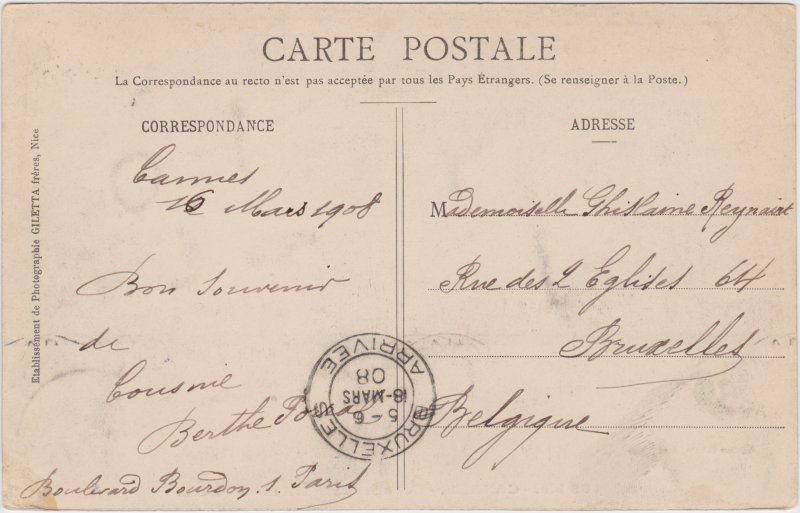 CARTE POSTALE
La Correspondance au recto n'est pas acceptée par tous les Pays Étrangers. (Se renseigner à la Poste.)
CORRESPONDANCE
Cannes
16 Mars 1908
Bon Souvenir
de
Cousine
Berthe
Boulevard Bourdon. 1. Paris
ADRESSE
Mademoiselle Ghislaine Reynaert
Rue des 2 Eglises 64
Bruxelles
Belgique
BRUXELLES
ARRIVEE
5-6
18-MARS
08
Etablissement de Photographie GILETTA frères, Nice